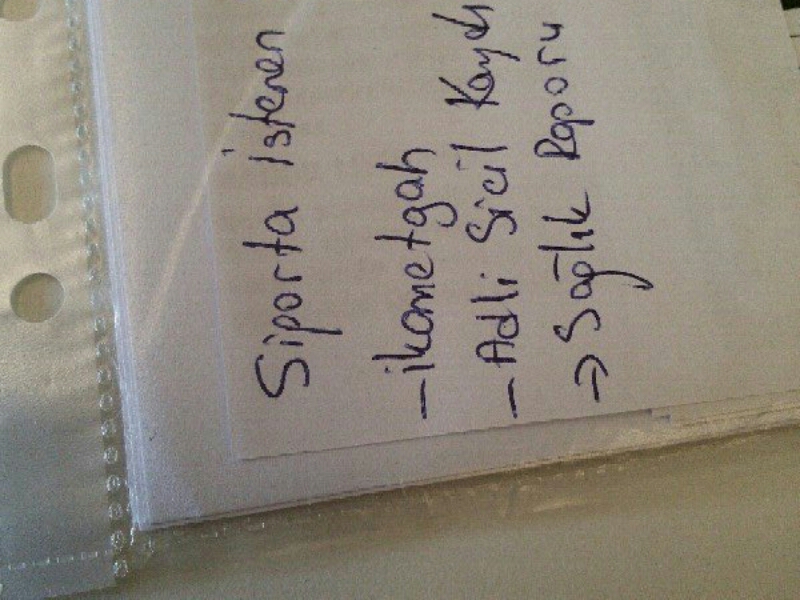 Siporta istenen
- ikametgah
- Adli Sicil Kaydı
→ Sağlık Raporu